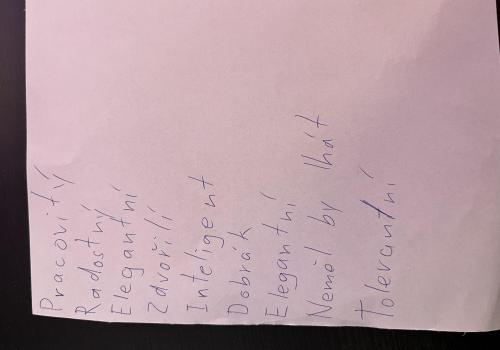 Pracovitý
Radostný
Elegantní
Zdvořilí
Inteligent
Dobrák
Elegantní
Neměl by lhát
Tolerantní